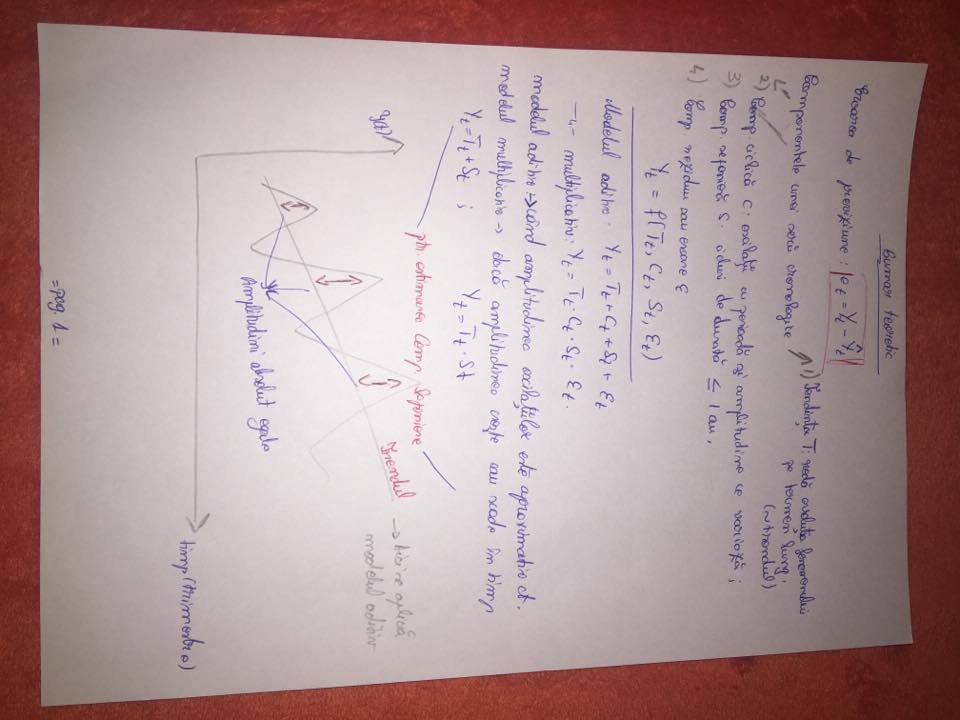 Sumar teoretic
Eroarea de previziune: et = Yt - Ŷt
Componentele unei serii cronologice → 1) Tendința T: redă evoluția fenomenului
pe termen lung.
(~trendul)
2) Comp. ciclică C: oscilații cu perioadă și amplitudine ce variază;
3) Comp. sezonieră S: cicluri de durată ≤ 1 an,
4) Comp. reziduu sau eroare ε
Yt = f(Tt, Ct, St, εt)
Modelul aditiv: Yt = Tt + Ct + St + εt
—11— multiplicativ: Yt = Tt · Ct · St · εt.
modelul aditiv → când amplitudinea oscilațiilor este aproximativ ct.
modelul multiplicativ → dacă amplitudinea crește sau scade în timp
Yt = Tt + St ; Yt = Tt · St
ptr. estimarea comp. sezoniere
y(t)
Trendul
→ aplică
modelul aditiv
Amplitudini absolut egale
timp (trimestre)
= pag. 1 =